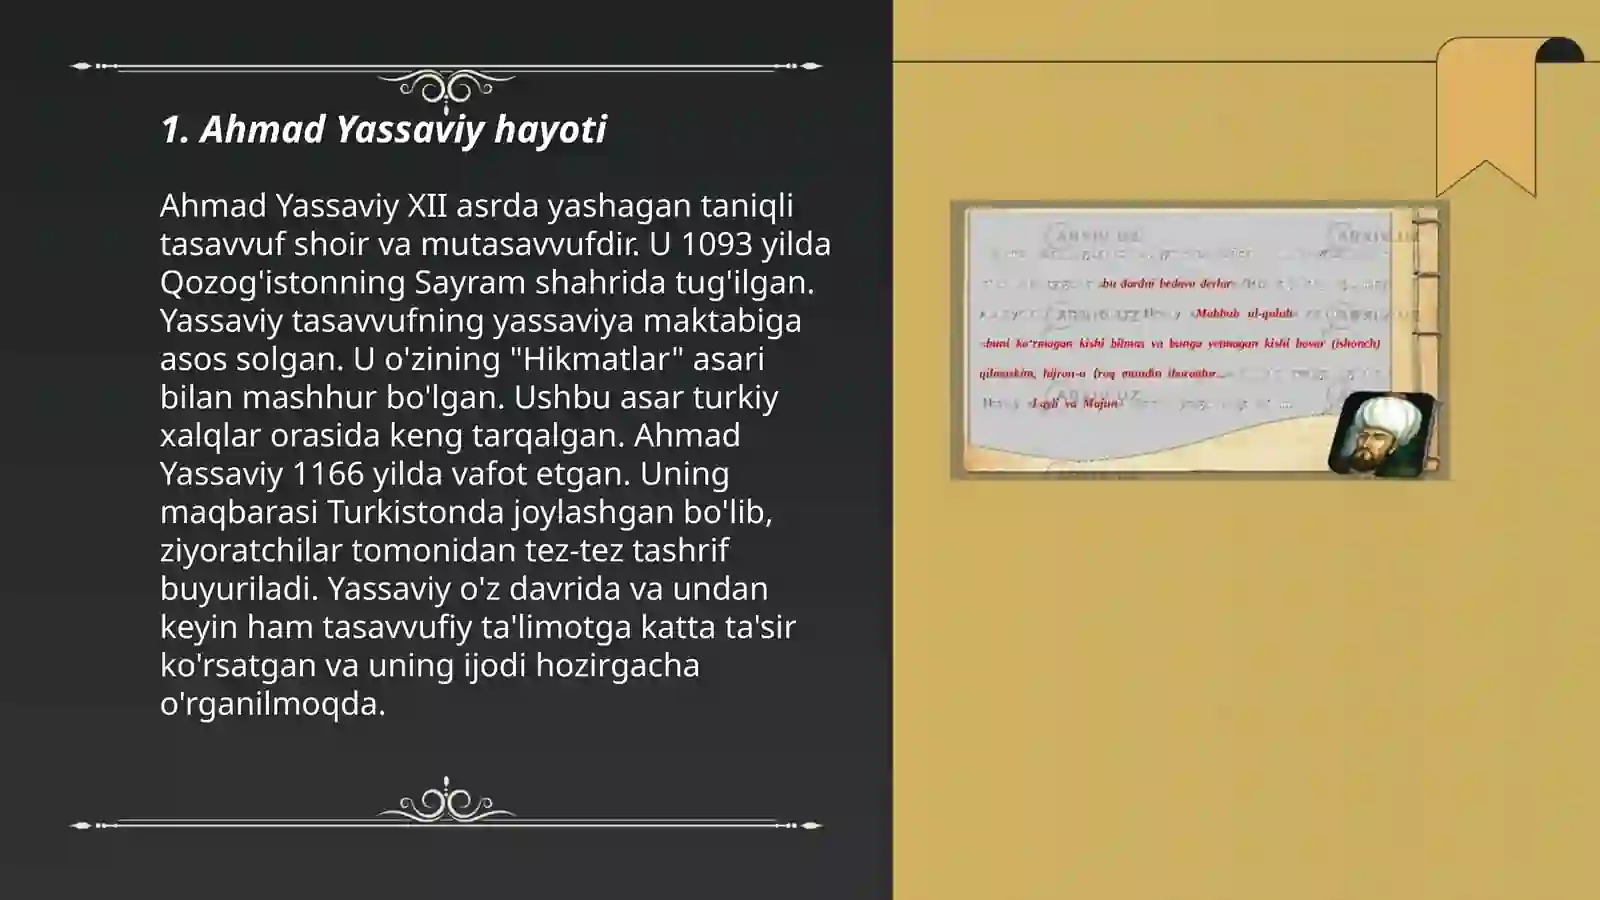 1. Ahmad Yassaviy hayoti
Ahmad Yassaviy XII asrda yashagan taniqli
tasavvuf shoir va mutasavvufdir. U 1093 yilda
Qozog'istonning Sayram shahrida tug'ilgan.
Yassaviy tasavvufning yassaviya maktabiga
asos solgan. U o'zining "Hikmatlar" asari
bilan mashhur bo'lgan. Ushbu asar turkiy
xalqlar orasida keng tarqalgan. Ahmad
Yassaviy 1166 yilda vafot etgan. Uning
maqbarasi Turkistonda joylashgan bo'lib,
ziyoratchilar tomonidan tez-tez tashrif
buyuriladi. Yassaviy o'z davrida va undan
keyin ham tasavvufiy ta'limotga katta ta'sir
ko'rsatgan va uning ijodi hozirgacha
o'rganilmoqda.
ARXIV.UZ ARXIV.UZ
«bu dardni bedavo derlar»
ARXIV.UZ «Mahbub ul-qulub» ARXIV.UZ
«buni ko'rmagan kishi bilmas va bunga yetmagan kishi bovar (ishonch)
qilmaskim, hijron-u
ARXIV.UZ
«Layli va Majnun»